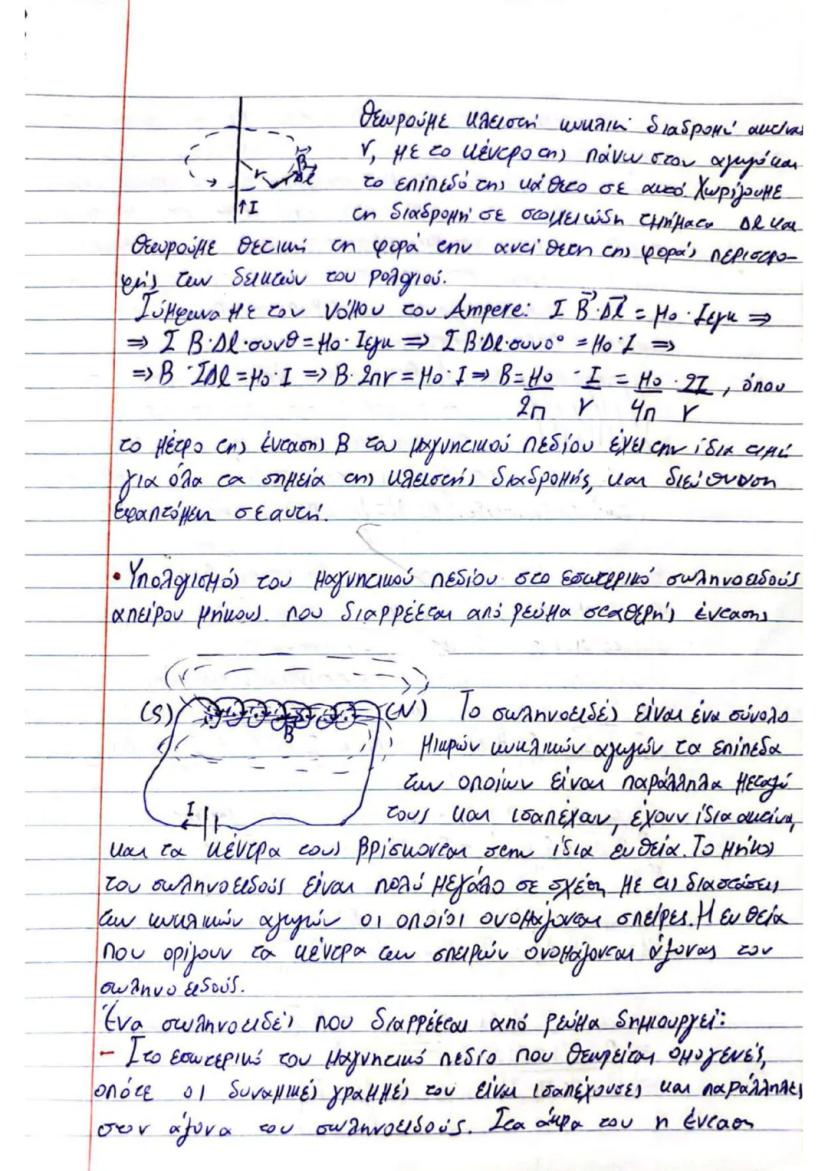 Θεωρούμε κλειστή κυκλική διαδρομή ακτίνας
r, με το κέντρο της πάνω στον αγωγό και
το επίπεδό της κάθετο σε αυτό. Χωρίζουμε
τη διαδρομή σε στοιχειώδη τμήματα Δl και
r
B⃗
Δl⃗
↑I
θεωρούμε θετική τη φορά την αντίθετη της φοράς περιστρο-
φής των δεικτών του ρολογιού.
Σύμφωνα με τον νόμου του Ampere: Σ B⃗·Δl⃗ = μ₀·Iεγκ ⇒
⇒ Σ B·Δl·συνθ = μ₀·Iεγκ ⇒ Σ B·Δl·συν0° = μ₀·I ⇒
⇒ B·ΣΔl = μ₀·I ⇒ B·2πr = μ₀·I ⇒ B = μ₀/2π · I/r = μ₀/4π · 2I/r, όπου
το μέτρο της έντασης B του μαγνητικού πεδίου έχει την ίδια τιμή
για όλα τα σημεία της κλειστής διαδρομής, και διεύθυνση
εφαπτόμενη σε αυτή.
• Υπολογισμός του μαγνητικού πεδίου στο εσωτερικό σωληνοειδούς
απείρου μήκους. που διαρρέεται από ρεύμα σταθερής έντασης
(S) (N) Το σωληνοειδές είναι ένα σύνολο
B⃗
μικρών κυκλικών αγωγών τα επίπεδα
των οποίων είναι παράλληλα μεταξύ
I
τους και ισαπέχουν, έχουν ίδια ακτίνα,
και τα κέντρα τους βρίσκονται στην ίδια ευθεία. Το μήκος
του σωληνοειδούς είναι πολύ μεγάλο σε σχέση με τις διαστάσεις
των κυκλικών αγωγών οι οποίοι ονομάζονται σπείρες. Η ευθεία
που ορίζουν τα κέντρα των σπειρών ονομάζονται άξονας του
σωληνοειδούς.
Ένα σωληνοειδές που διαρρέεται από ρεύμα δημιουργεί:
- Στο εσωτερικό του μαγνητικό πεδίο που θεωρείται ομογενές,
οπότε οι δυναμικές γραμμές του είναι ισαπέχουσες και παράλληλες
στον άξονα του σωληνοειδούς. Στα άκρα του η ένταση